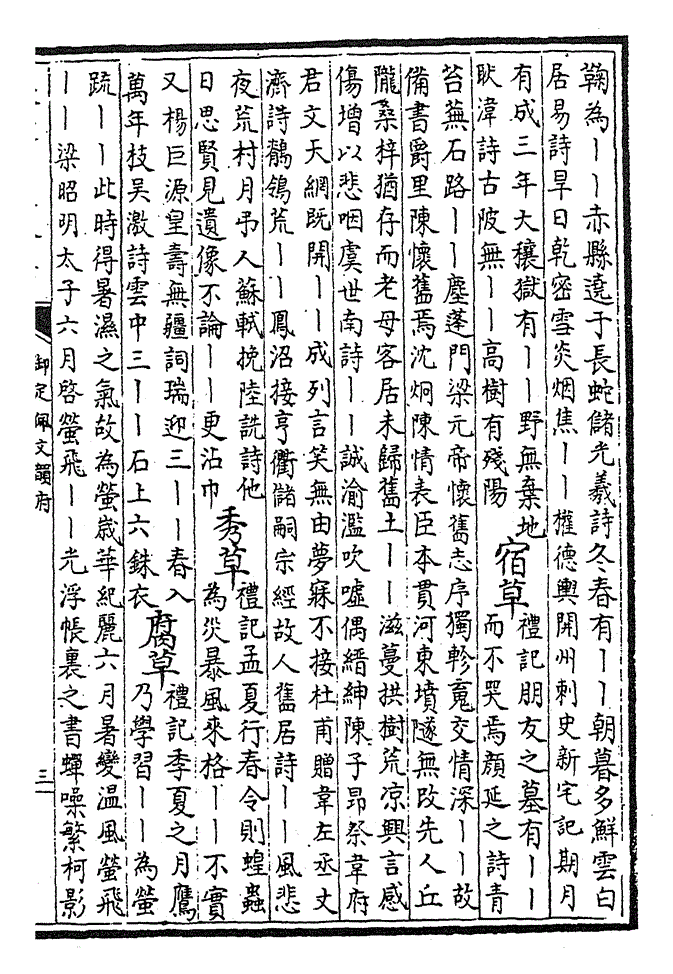 鞠為丨丨赤縣遶于長蛇儲光羲詩冬春有丨丨朝暮多鮮雲白
居易詩旱日乾密雪炎烟焦丨丨權德輿開州刺史新宅記期月
有成三年大穰獄有丨丨野無棄地
耿湋詩古陂無丨丨高樹有殘陽
宿草
禮記朋友之墓有丨丨
而不哭焉顔延之詩青
苔蕪石路丨丨塵蓬門梁元帝懷舊志序獨軫䰟交情深丨丨故
備書爵里陳懷舊焉沈炯陳情表臣本貫河東墳隧無改先人丘
隴桑梓猶存而老母客居未歸舊土丨丨滋蔓拱樹荒凉興言感
傷增以悲咽虞世南詩丨丨誠渝濫吹噓偶縉紳陳子昂祭韋府
君文天網既開丨丨成列言笑無由夢寐不接杜甫贈韋左丞丈
濟詩鶺鴒荒丨丨鳳沼接亨衢儲嗣宗經故人舊居詩丨丨風悲
夜荒村月弔人蘇軾挽陸詵詩他
日思賢見遺像不論丨丨更沾巾
秀草
禮記孟夏行春令則蝗蟲
為災暴風來格丨丨不實
又楊巨源皇壽無疆詞瑞迎三丨丨春入
萬年枝吳激詩雲中三丨丨石上六銖衣
腐草
禮記季夏之月鷹
乃學習丨丨為螢
䟽丨丨此時得暑濕之氣故為螢嵗華紀麗六月暑變温風螢飛
丨丨梁昭明太子六月啓螢飛丨丨光浮帳裏之書蟬噪繁柯影
御定佩文韻府
三